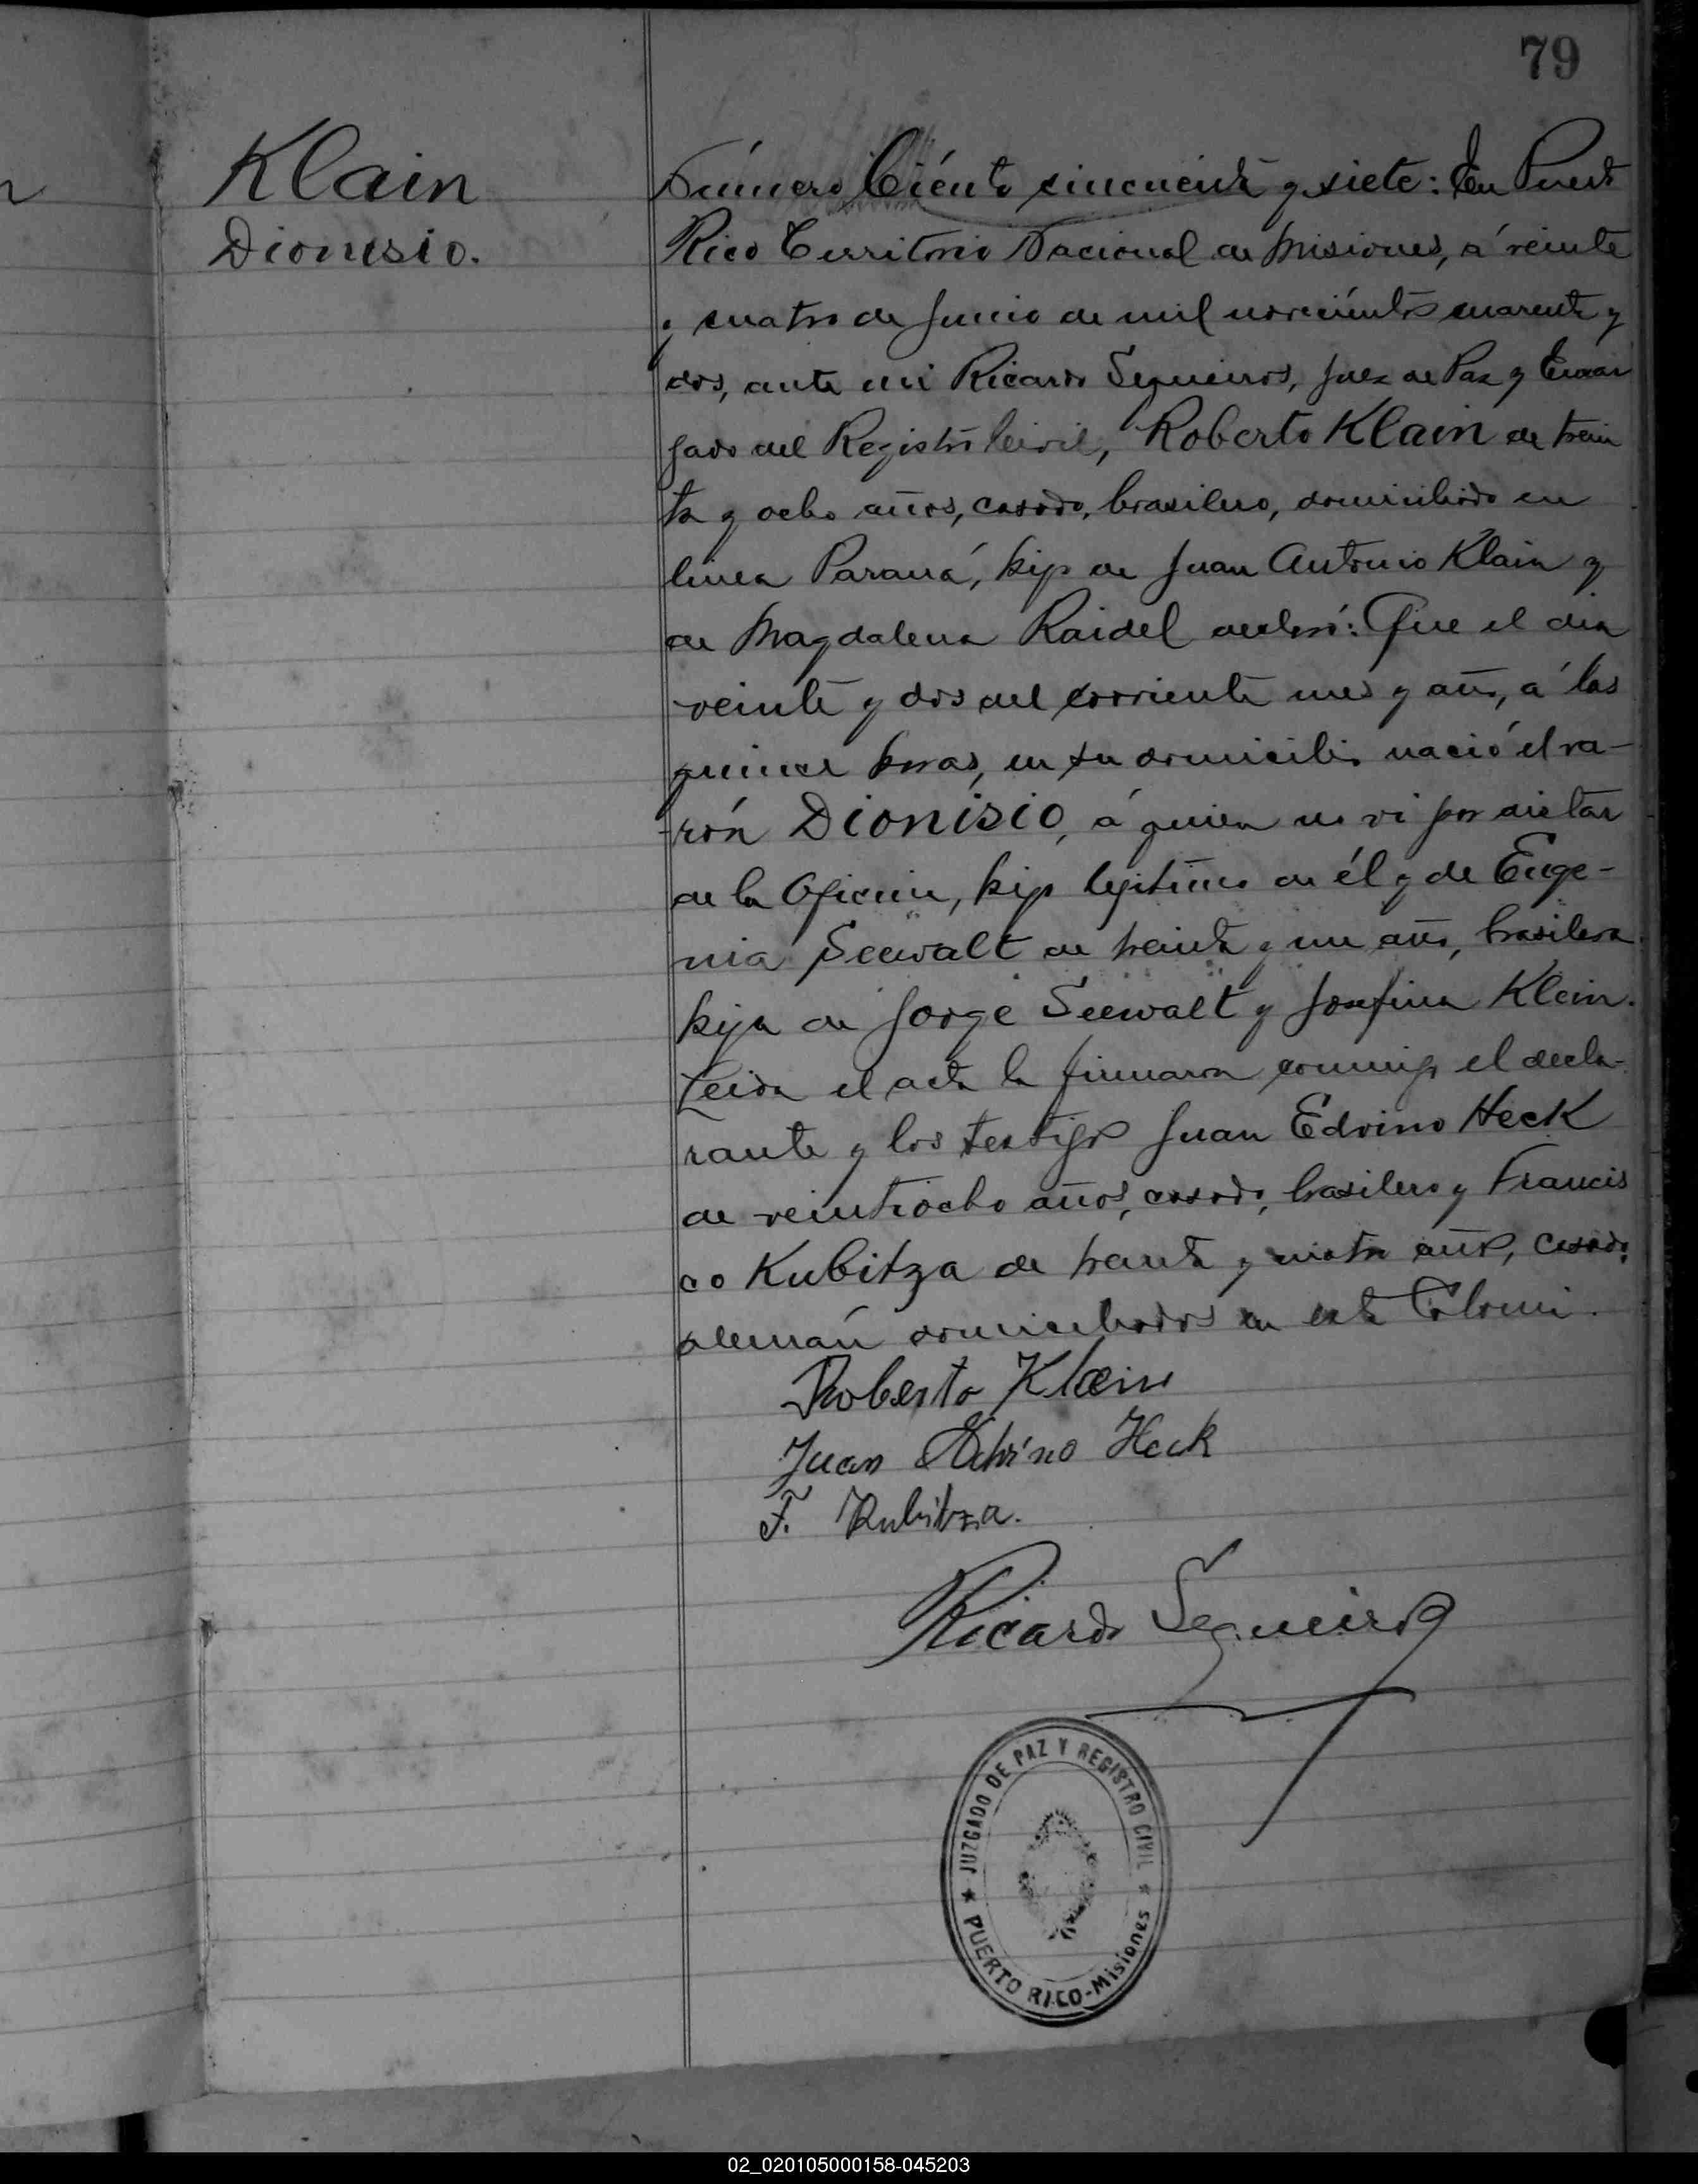 79
Klain
Dionisio.
Número Ciento cincuenta y siete: En Puerto
Rico Territorio Nacional de Misiones, á veinte
y cuatro de Junio de mil novecientos cuarenta y
dos, ante mi Ricardo Sequeiros, Juez de Paz y Encar
gado del Registro Civil, Roberto Klain de trein
ta y ocho años, casado, brasilero, domiciliado en
linea Paraná, hijo de Juan Antonio Klain y
de Magdalena Raidel declaró: Que el dia
veinte y dos del corriente mes y año, á las
quince horas, en su domicilio nació el va-
rón Dionisio, á quien no vi por distar
de la Oficina, hijo legitimo de él y de Euge-
nia Seewalt de treinta y un años, brasilera
hija de Jorge Seewalt y Josefina Klein.
Leida el acta la firmaron conmigo el decla-
rante y los testigos Juan Edvino Heck
de veintiocho años, casado, brasilero y Francis
co Kubitza de treinta y cuatro años, casado,
aleman domiciliados en esta Colonia.
Roberto Klein
Juan Edvino Heck
F. Kubitza.
Ricardo Sequeiros
JUZGADO DE PAZ Y REGISTRO CIVIL
PUERTO RICO-Misiones
02_020105000158-045203